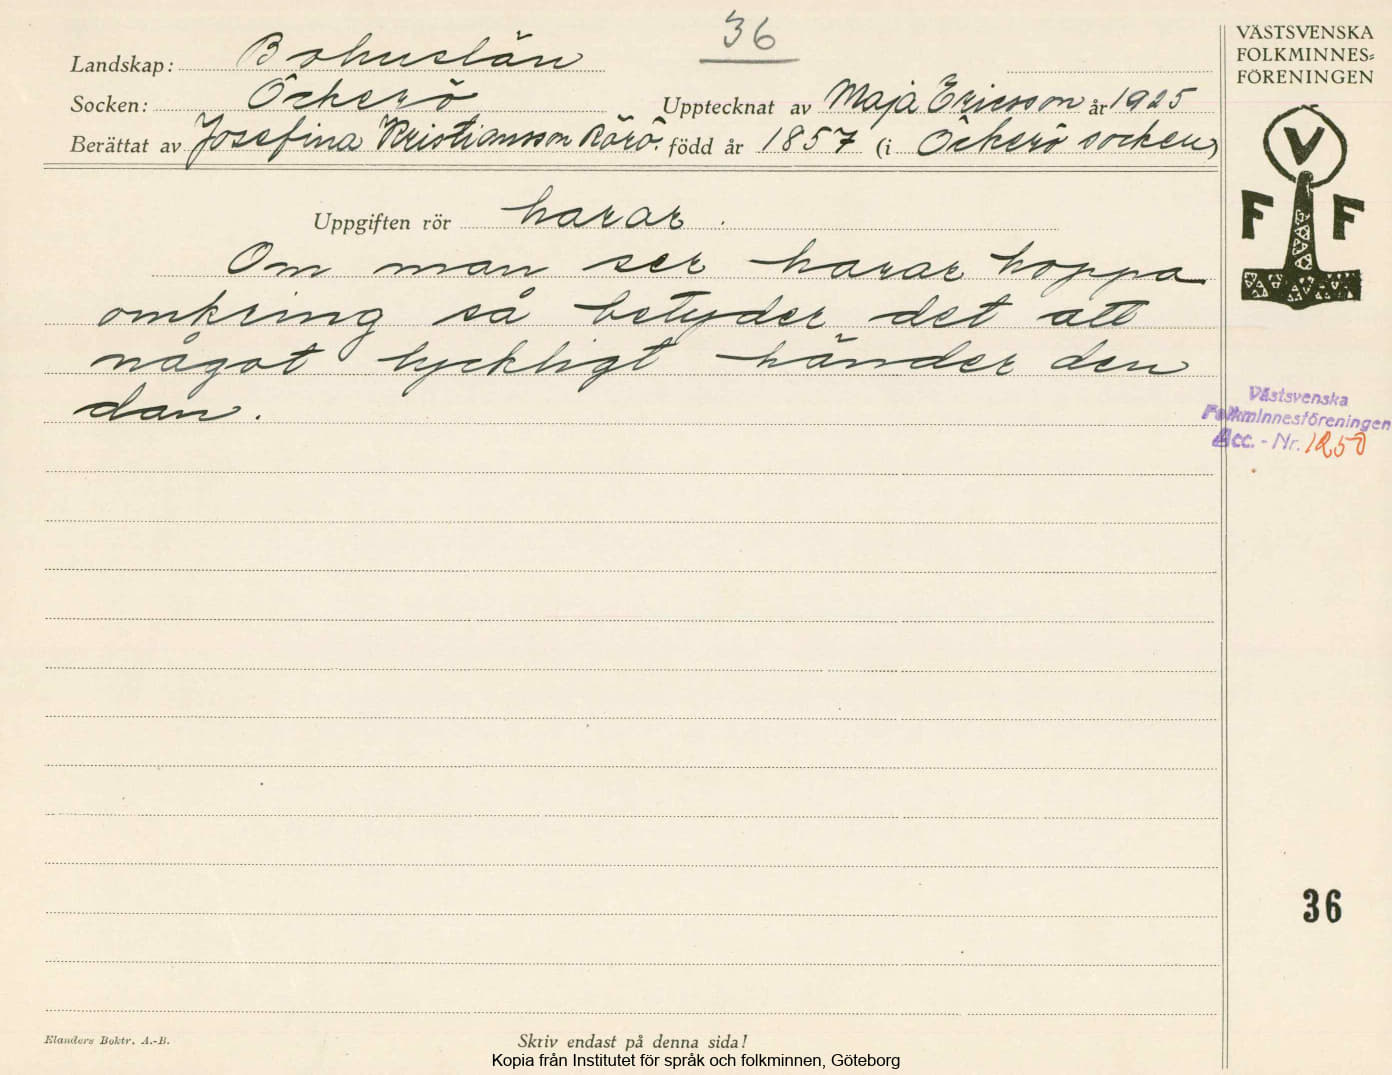 36
Landskap: Bohuslän
Socken: Öckerö Upptecknat av Maja Ericsson år 1925
Berättat av Josefina Kristiansson Rörö. född år 1857 (i Öckerö socken)
Uppgiften rör harar.
Om man ser harar hoppa
omkring så betyder det att
något lyckligt händer den
dan.
VÄSTSVENSKA
FOLKMINNES=
FÖRENINGEN
V
F F
Västsvenska
Folkminnesföreningen
Acc. - Nr. 1250
36
Elanders Boktr. A.-B.
Skriv endast på denna sida!
Kopia från Institutet för språk och folkminnen, Göteborg